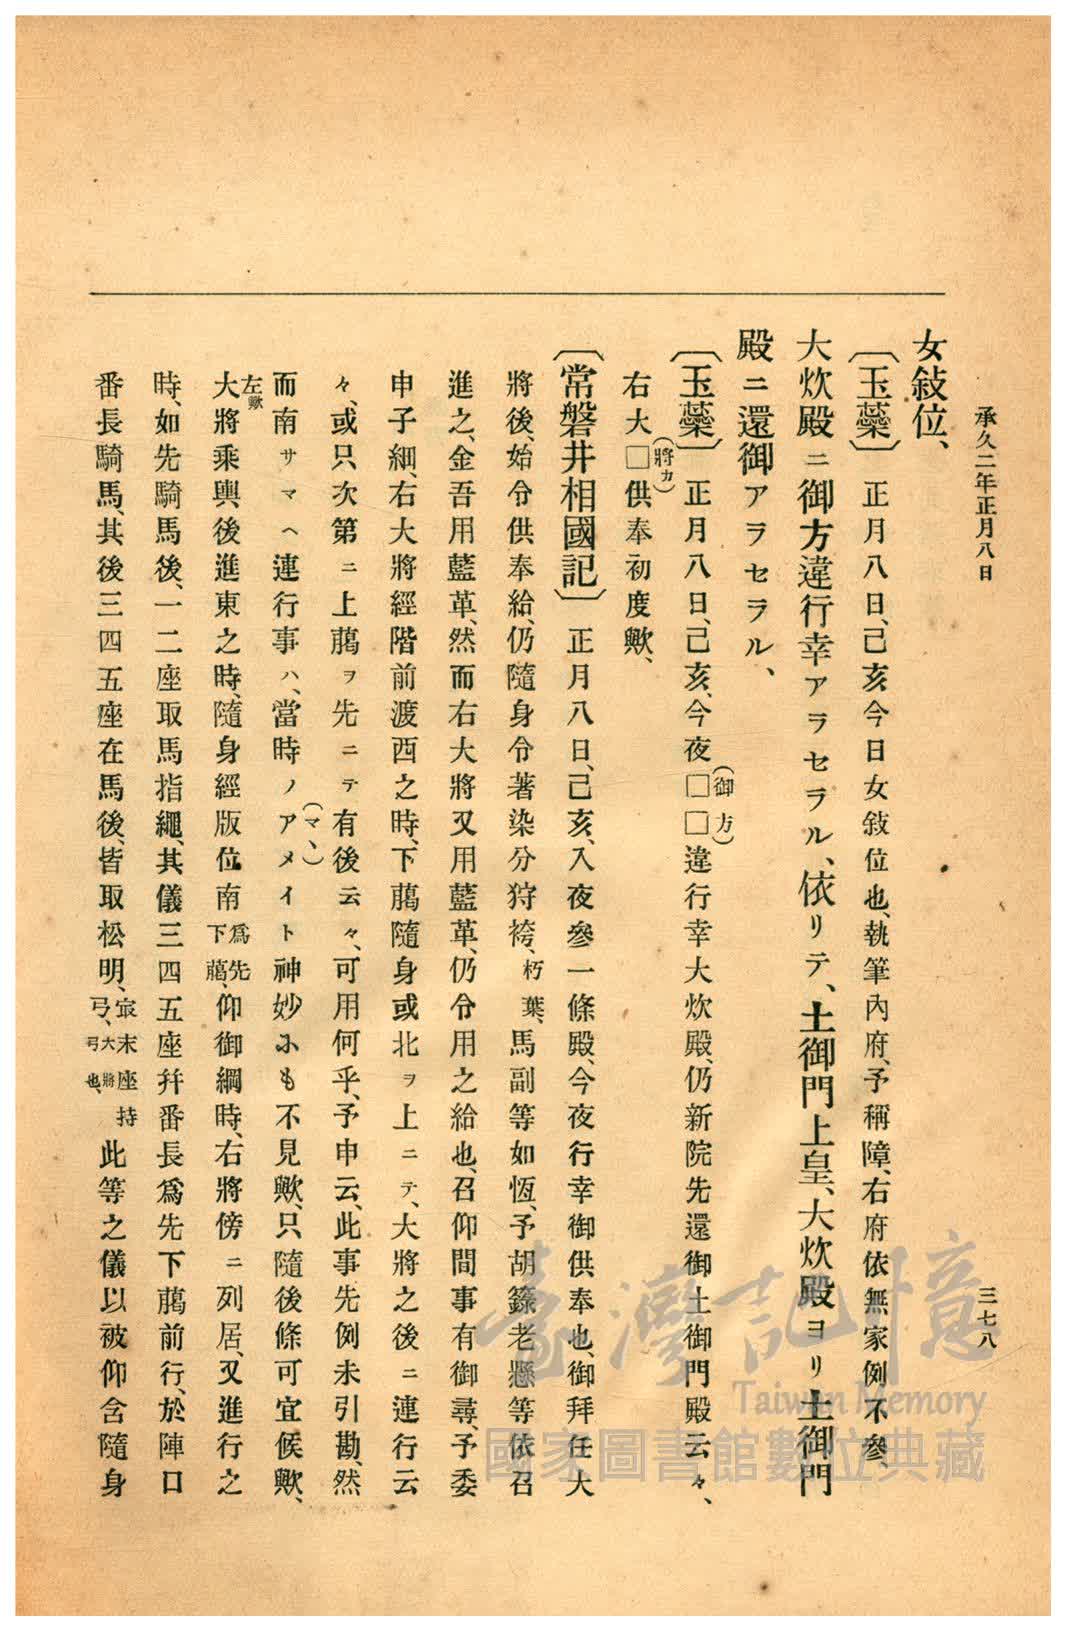 承久二年正月八日
三七八
女敍位、
〔玉蘂〕 正月八日、己亥今日女敍位也、執筆內府、予稱障、右府依無家例不參、
大炊殿ニ御方違行幸アラセラル、依リテ、土御門上皇、大炊殿ヨリ土御門
殿ニ還御アラセラル、
〔玉蘂〕 正月八日、己亥、今夜□□(御方)違行幸大炊殿、仍新院先還御土御門殿云々、
右大□(將カ)供奉初度歟、
〔常磐井相國記〕 正月八日、己亥、入夜參一條殿、今夜行幸御供奉也、御拜任大
將後、始令供奉給、仍隨身令著染分狩袴、朽葉、馬副等如恆、予胡籙老懸等依召
進之、金吾用藍革、然而右大將又用藍革、仍令用之給也、召仰間事有御尋、予委
申子細、右大將經階前渡西之時、下﨟隨身或北ヲ上ニテ、大將之後ニ連行云
々、或只次第ニ上﨟ヲ先ニテ有後云々、可用何乎、予申云、此事先例未引勘、然
而南サマヘ連行事ハ、當時ノアメイト(マヽ)神妙ニも不見歟、只隨後條可宜候歟、
大(左歟)將乘輿後進東之時、隨身經版位南爲先下﨟、仰御綱時、右將傍ニ列居、又進行之
時、如先騎馬後、一二座取馬指繩、其儀三四五座幷番長爲先下﨟前行、於陣口
番長騎馬、其後三四五座在馬後、皆取松明、㝡末座持弓、大將弓也、此等之儀以被仰含隨身
臺灣記憶
Taiwan Memory
國家圖書館數位典藏